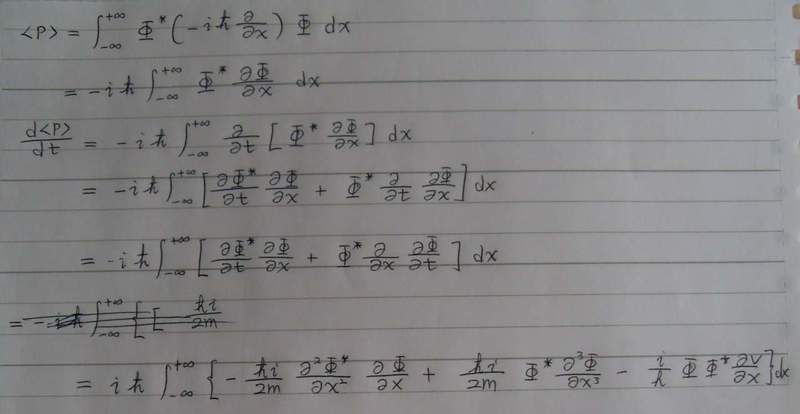 <P> = ∫_{-∞}^{+∞} Φ* (-iħ ∂/∂x) Φ dx
= -iħ ∫_{-∞}^{+∞} Φ* ∂Φ/∂x dx
d<P>/dt = -iħ ∫_{-∞}^{+∞} ∂/∂t [Φ* ∂Φ/∂x] dx
= -iħ ∫_{-∞}^{+∞} [∂Φ*/∂t ∂Φ/∂x + Φ* ∂/∂t ∂Φ/∂x] dx
= -iħ ∫_{-∞}^{+∞} [∂Φ*/∂t ∂Φ/∂x + Φ* ∂/∂x ∂Φ/∂t] dx
= -iħ ∫_{-∞}^{+∞} { [ ħi/2m
= iħ ∫_{-∞}^{+∞} {-ħi/2m ∂²Φ*/∂x² ∂Φ/∂x + ħi/2m Φ* ∂³Φ/∂x³ - i/ħ ΦΦ* ∂V/∂x] dx